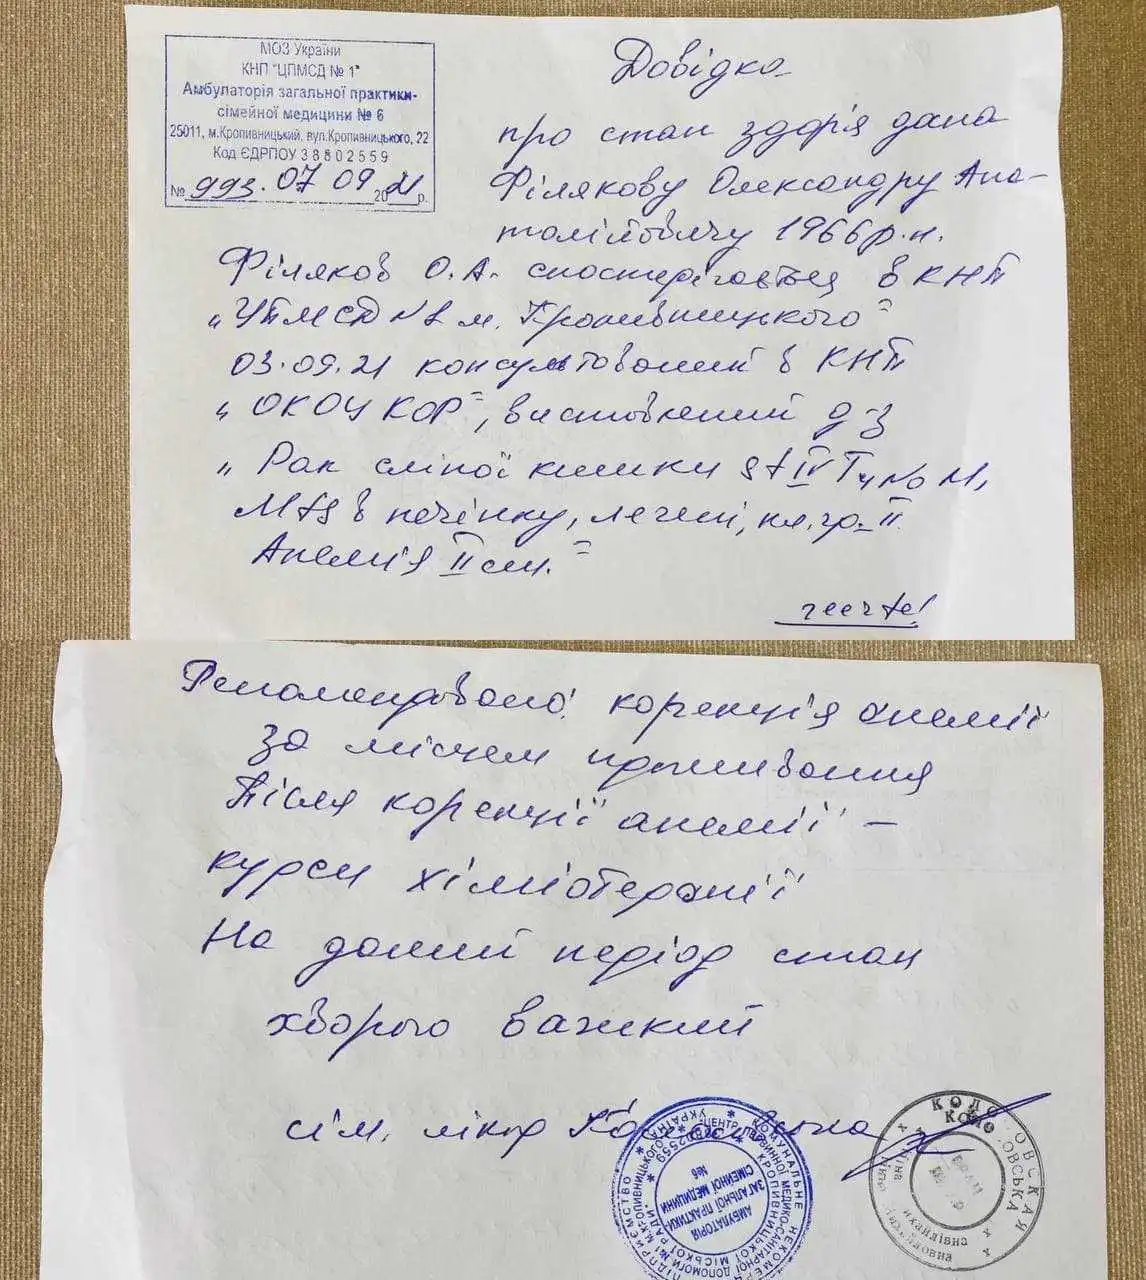 МОЗ України
КНП "ЦПМСД № 1"
Амбулаторія загальної практики-
сімейної медицини № 6
25011, м.Кропивницький, вул.Кропивницького, 22
Код ЄДРПОУ 38802559
№ 993. 07 09 2021 р.
Довідка
про стан здорів'я дана
Філякову Олександру Ана-
толійовичу 1966 р.н.
Філяков О.А. спостерігається в КНП
"ЦПМСД №1 м. Кропивницького"
03.09.21 консультований в КНП
"ОКОЦ КОР", виставлений д-з
"Рак сліпої кишки st IV T4 No M1
Mts в печінку, легені, кл.гр. II.
Анемія II ст."
Рекомендовано: корекція анемії
за місцем проживання
Після корекції анемії –
курси хіміотерапії
На даний період стан
хворого важкий
сім. лікар
КОМУНАЛЬНЕ НЕКОМЕРЦ ПІДПРИЄМСТВО
ЦЕНТР ПЕРВИННОЇ МЕДИКО-САНІТАРНОЇ ДОПОМОГИ №1 М.КРОПИВНИЦЬКОГО
КРОПИВНИЦЬКОЇ МІСЬКОЇ РАДИ
УКРАЇНА
38802559
АМБУЛАТОРІЯ
ЗАГАЛЬНОЇ ПРАКТИКИ-
СІМЕЙНОЇ МЕДИЦИНИ
№6